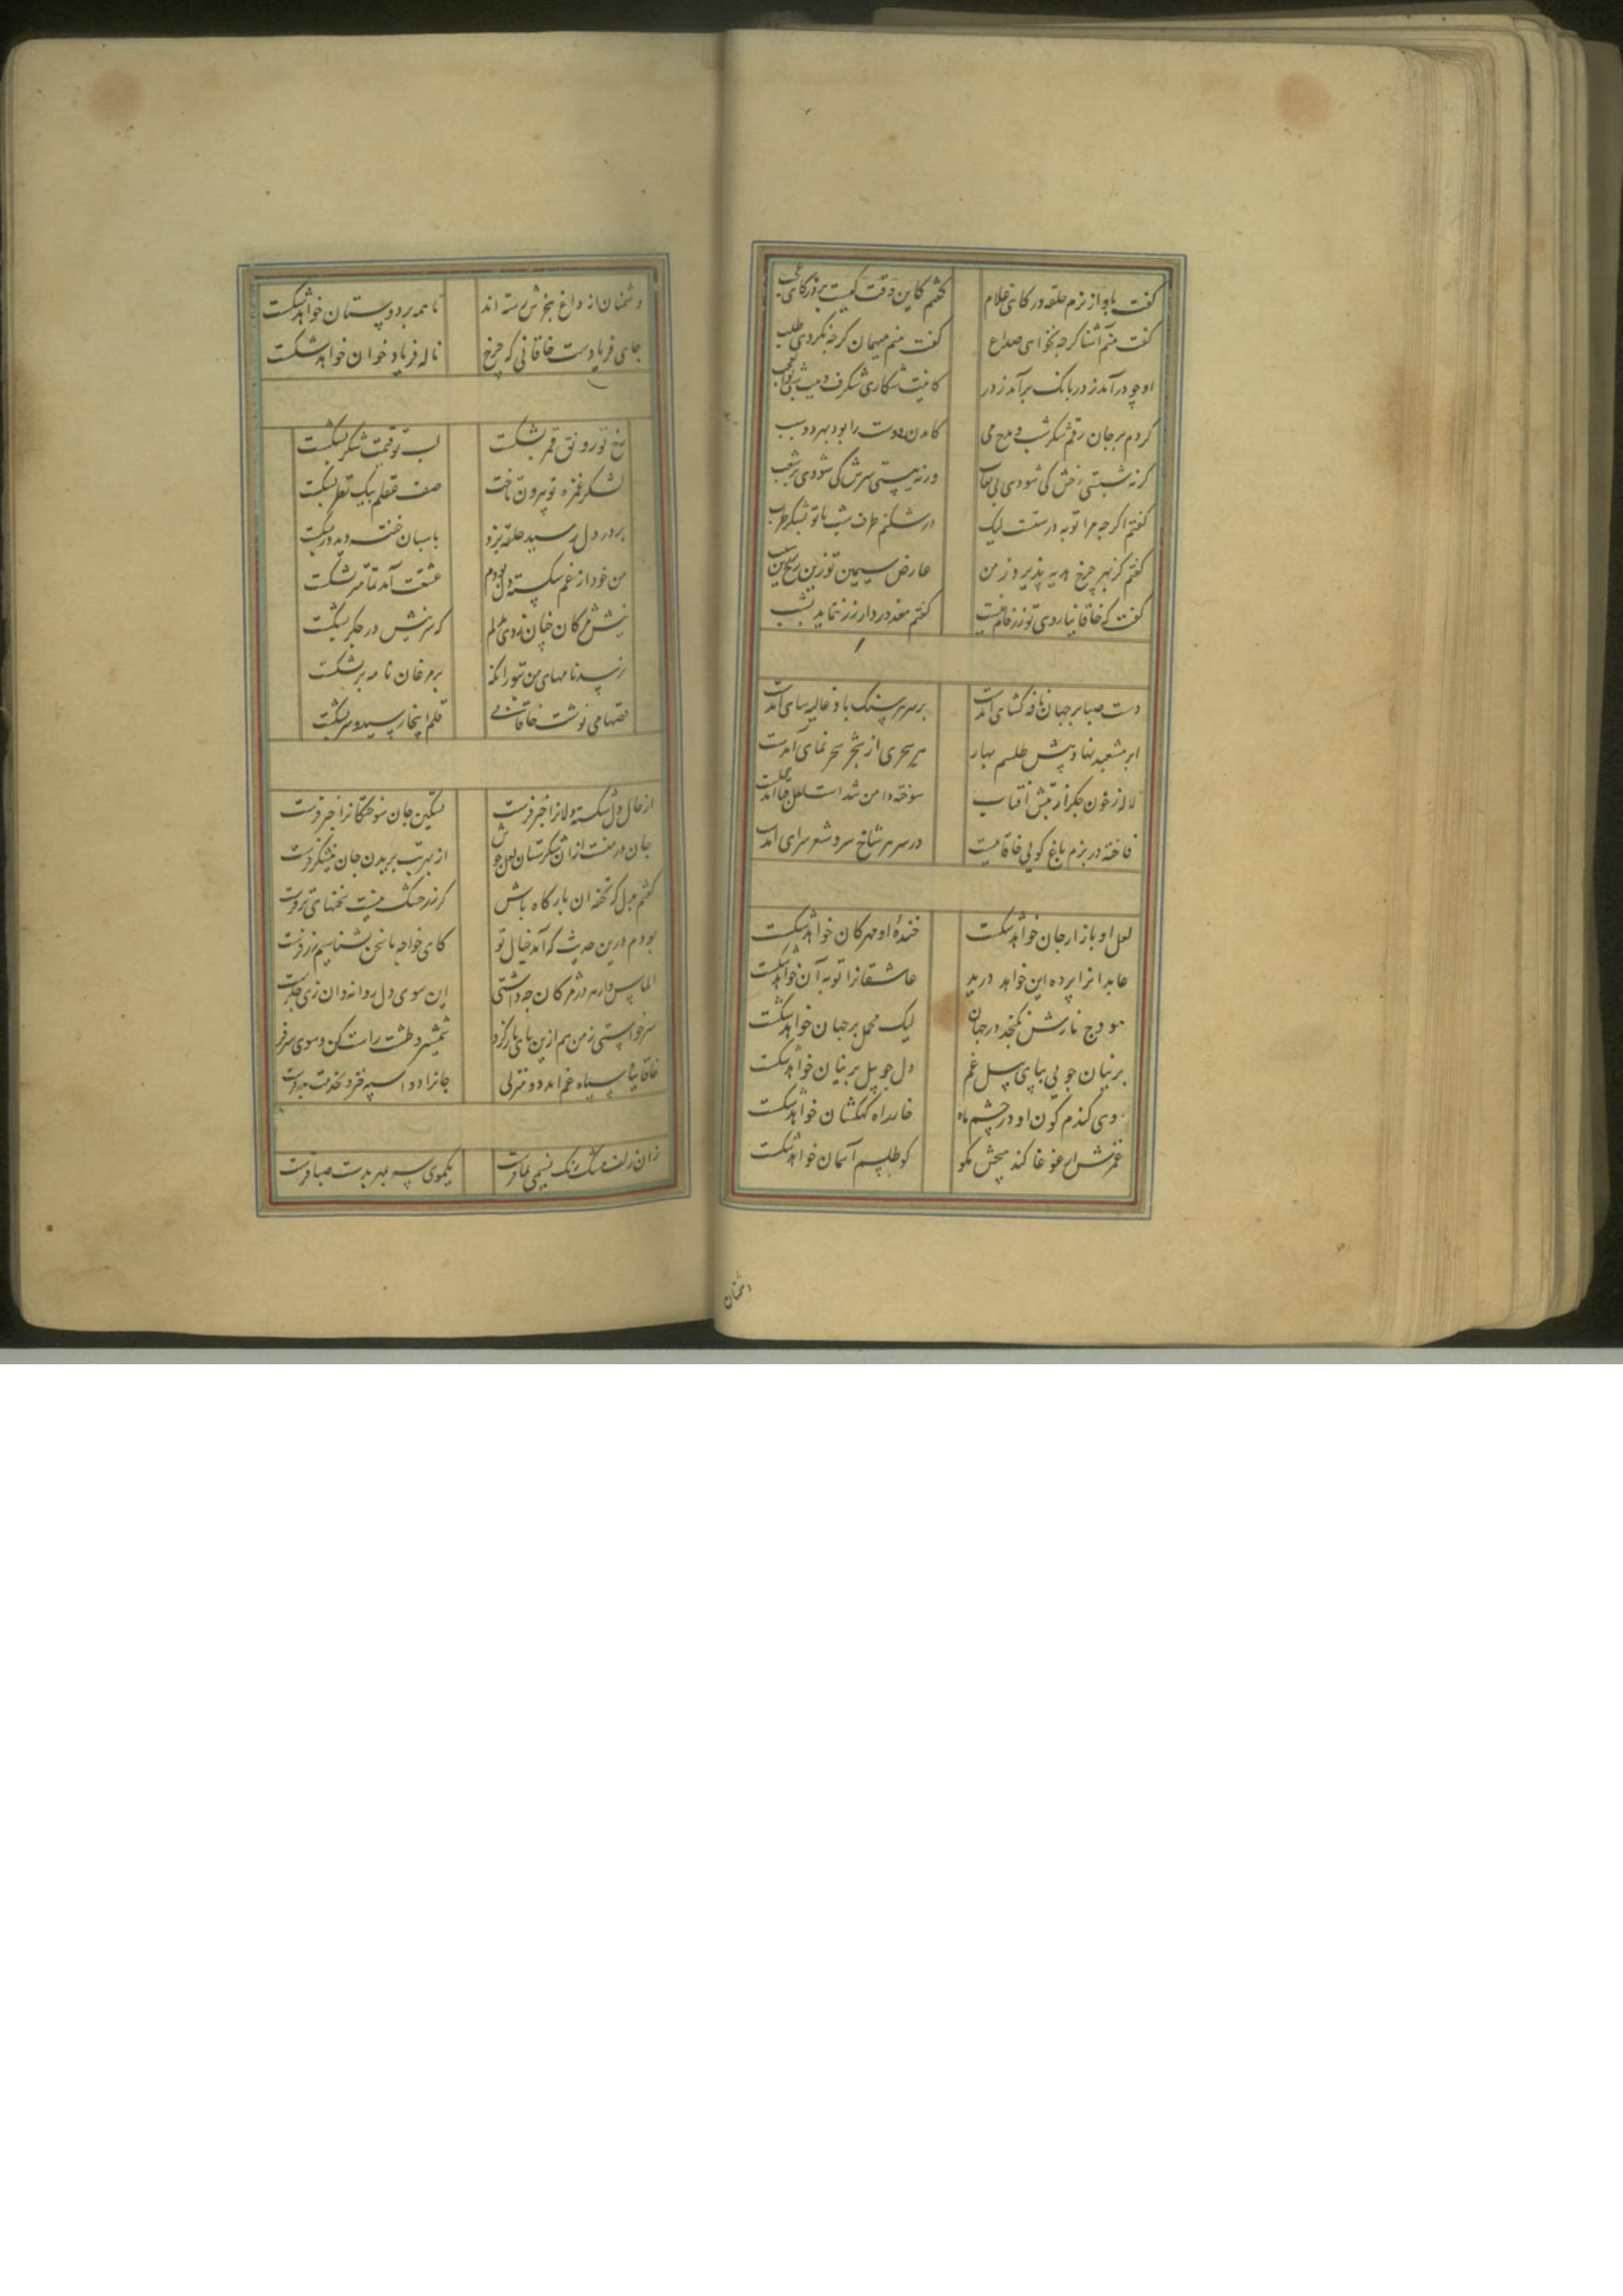 گفت بآواز نرم حلقه در کای غلام گفتم کاین وقت کیست بر در کای عجب
گفت منم آشنا گرچه نخواهی صداع گفت منم میهمان گرچه نکردی طلب
او چو در آمد ز در بانک برآمد ز در کانیت شکاری شگرف وینت شبی بوالعجب
کردم بر جان رقم شکر شب و مدح می کامدن دوست را بود بهر دو سبب
گر نه شبستی رخش کی شودی بی نقاب ور نه میستی سرش کی شودی پر شغب
گفتم اگرچه مرا توبه درستست لیک درشکنم طرف شب با تو بشکر طرب
گفتم کز بهر خرج هدیه پذیرد ز من عارض سیمین تو زین رخ زرین
گفت که خاقانیا روی تو زرفام نیست گفتم معذور دار زر ننماید بشب
دست صبا بر جهان نافه گشای آمدست بر سر هر سنگ باد غالیه سای آمدست
ابر مشعبد نهاد پیش طلسم بهار هر سحری از شجر سحر نمای آمدست
لاله ز خون جگر از تپش آفتاب سوخته دامن شد است لعل قبا آمدست
فاخته در بزم باغ گویی خاقانیست در سر هر شاخ سرو شعر سرای آمدست
لعل او بازار جان خواهد شکست خنده او مهر کان خواهد شکست
عابدانرا پرده این خواهد درید عاشقانرا توبه آن خواهد شکست
هودج نازش نگنجد در جهان لیک محمل بر جهان خواهد شکست
بر نیان جویی بپای سیل غم دل چو پیل بر نیان خواهد شکست
روی گندم گون او در چشم ماه خار راه کهکشان خواهد شکست
غمزش ار غوغا کند هیچش مگو کو طلسم آسمان خواهد شکست
دشمنان
دشمنان از داغ هجرش رسته اند تا همه بر دوستان خواهد شکست
جای فریادست خاقانی که چرخ ناله فریاد خوان خواهد شکست
رخ تو رونق قمر بشکست لب تو قیمت شکر بشکست
لشکر غمزه تو بیرون تاخت صف عقلم بیک نظر بشکست
بر در دل رسید حلقه بزد پاسبان خفته دید در بشکست
من خود از غم شکسته دل بودم عشقت آمد تمامتر بشکست
نیش مژگان چنان زدی بدلم که سر نیش در جگر بشکست
نرسد نامهای من بتو زانکه پر مرغان نامه بر بشکست
قصها می نوشت خاقانی قلم اینجا رسید و سر بشکست
از حال دل شکسته دلانرا خبر فرست تسکین جان سوختگانرا خبر فرست
جان در تبست ازان شکرستان لعل خویش از بهر تب بریدن جان نیشکر فرست
گفتم بدل که تحفه آن بارگاه باش گر زر خشک نیست سخنهای تر فرست
بودم درین حدیث که آمد خیال تو کای خواجه ما سخن نشناسیم زر فرست
الماس دار در مژگان چه داشتی این سوی دل روانه و آن زی جگر فرست
سر خواستی ز من هم ازین پای باز گرد شمشیر و طشت راست کن و سوی سر فرست
خاقانیا سپاه غم آمد دو منزلی جانرا دو اسپه خیز و بخدمت بدر فرست
زان زلف مشک رنگ نسیمی بما فرست یکموی سر بمهر بدست صبا فرست